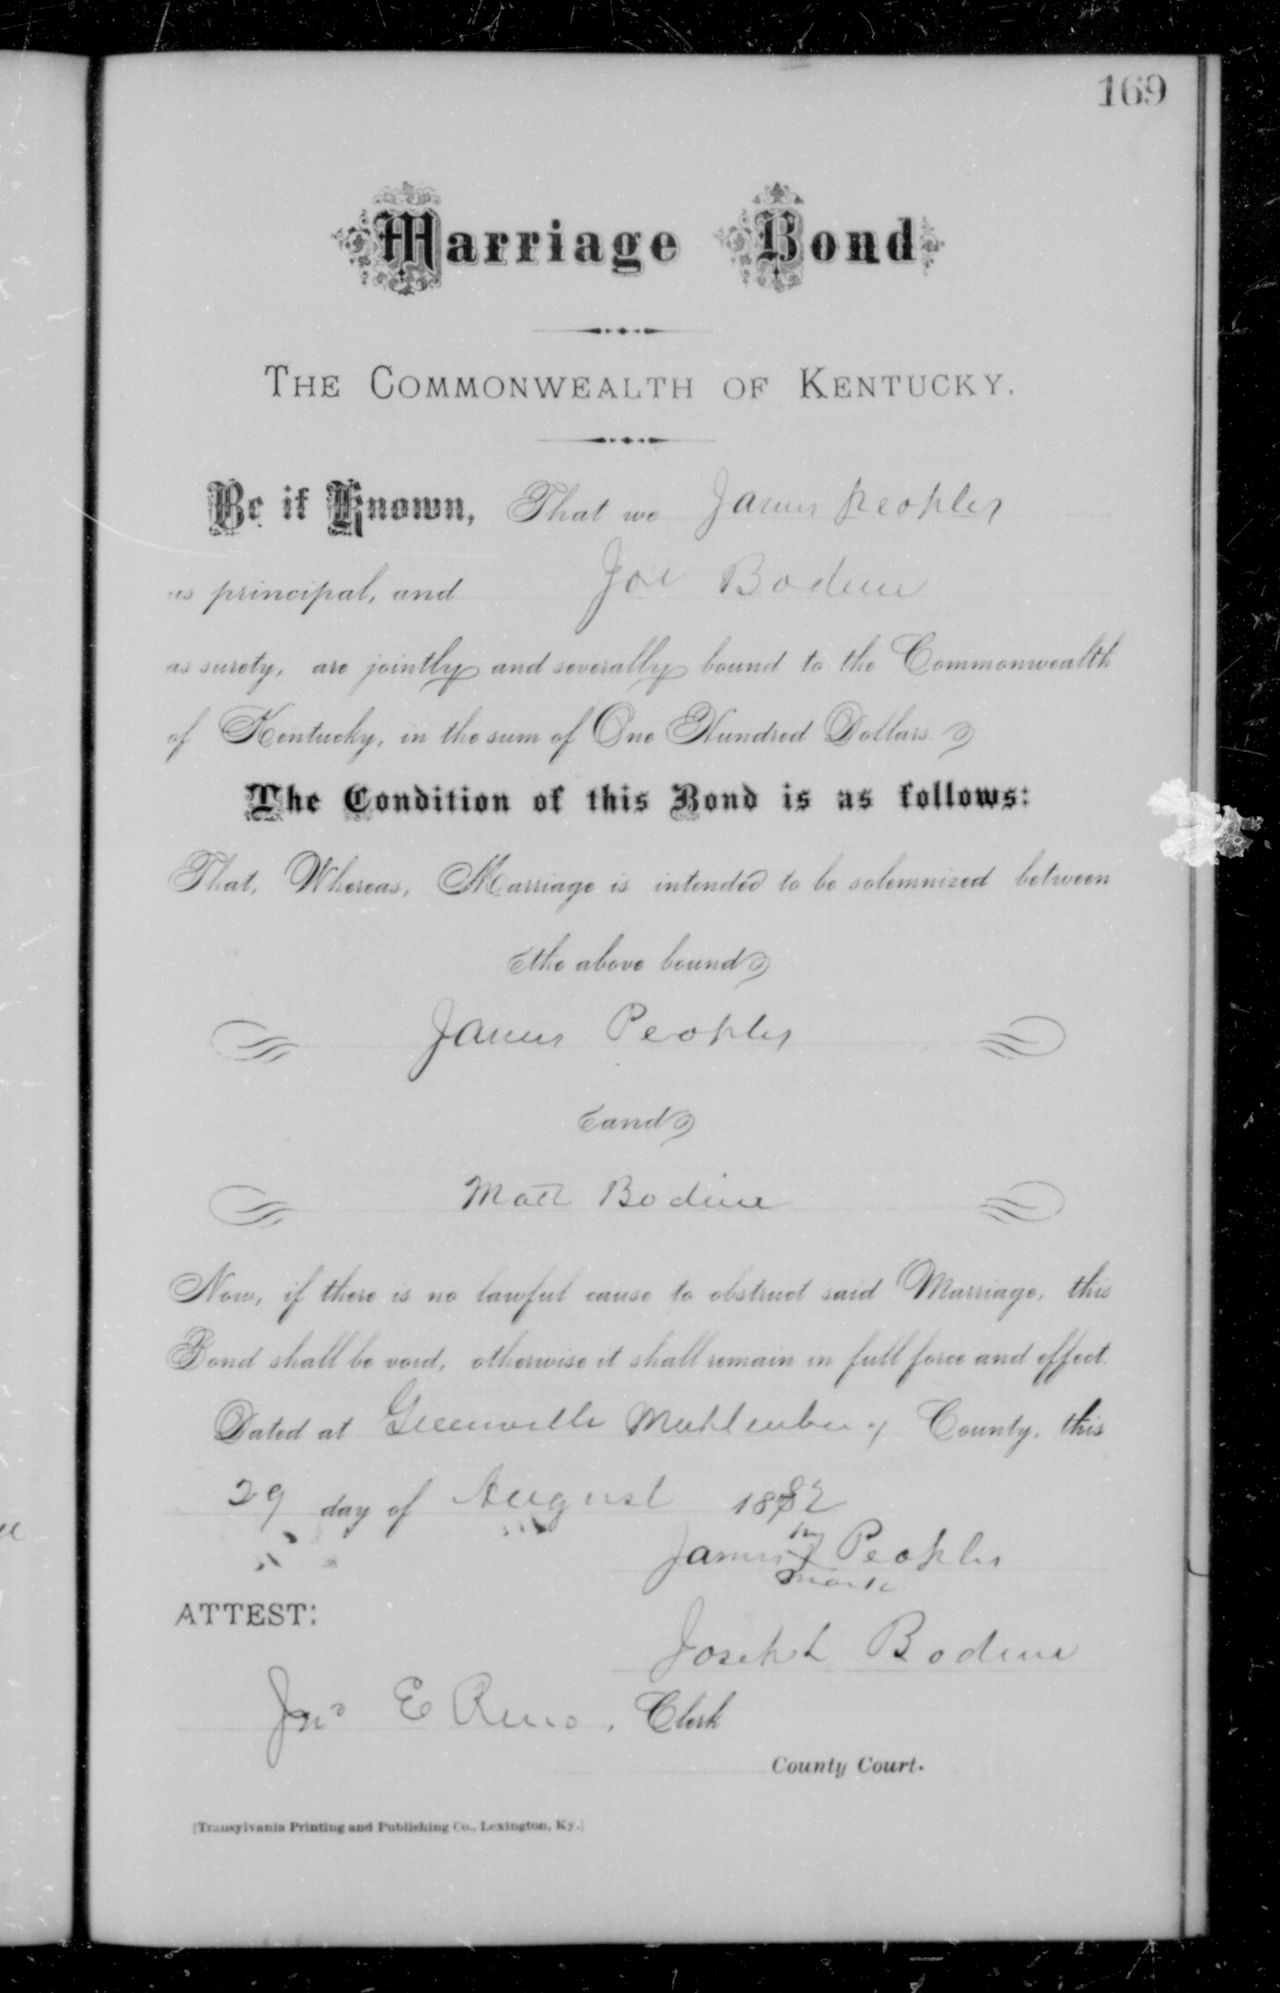 169
Marriage Bond
THE COMMONWEALTH OF KENTUCKY.
Be it Known, That we James Peoples
as principal, and Joe Bodine
as surety, are jointly and severally bound to the Commonwealth
of Kentucky, in the sum of One Hundred Dollars.
The Condition of this Bond is as follows:
That, Whereas, Marriage is intended to be solemnized between
the above bound
James Peoples
and
Matt Bodine
Now, if there is no lawful cause to obstruct said Marriage, this
Bond shall be void, otherwise it shall remain in full force and effect.
Dated at Greenville Muhlenberg County, this
29 day of August 1882
his
James X Peoples
mark
ATTEST:
Joseph Bodine
Jno E Reno, Clerk
County Court.
[Transylvania Printing and Publishing Co., Lexington, Ky.]